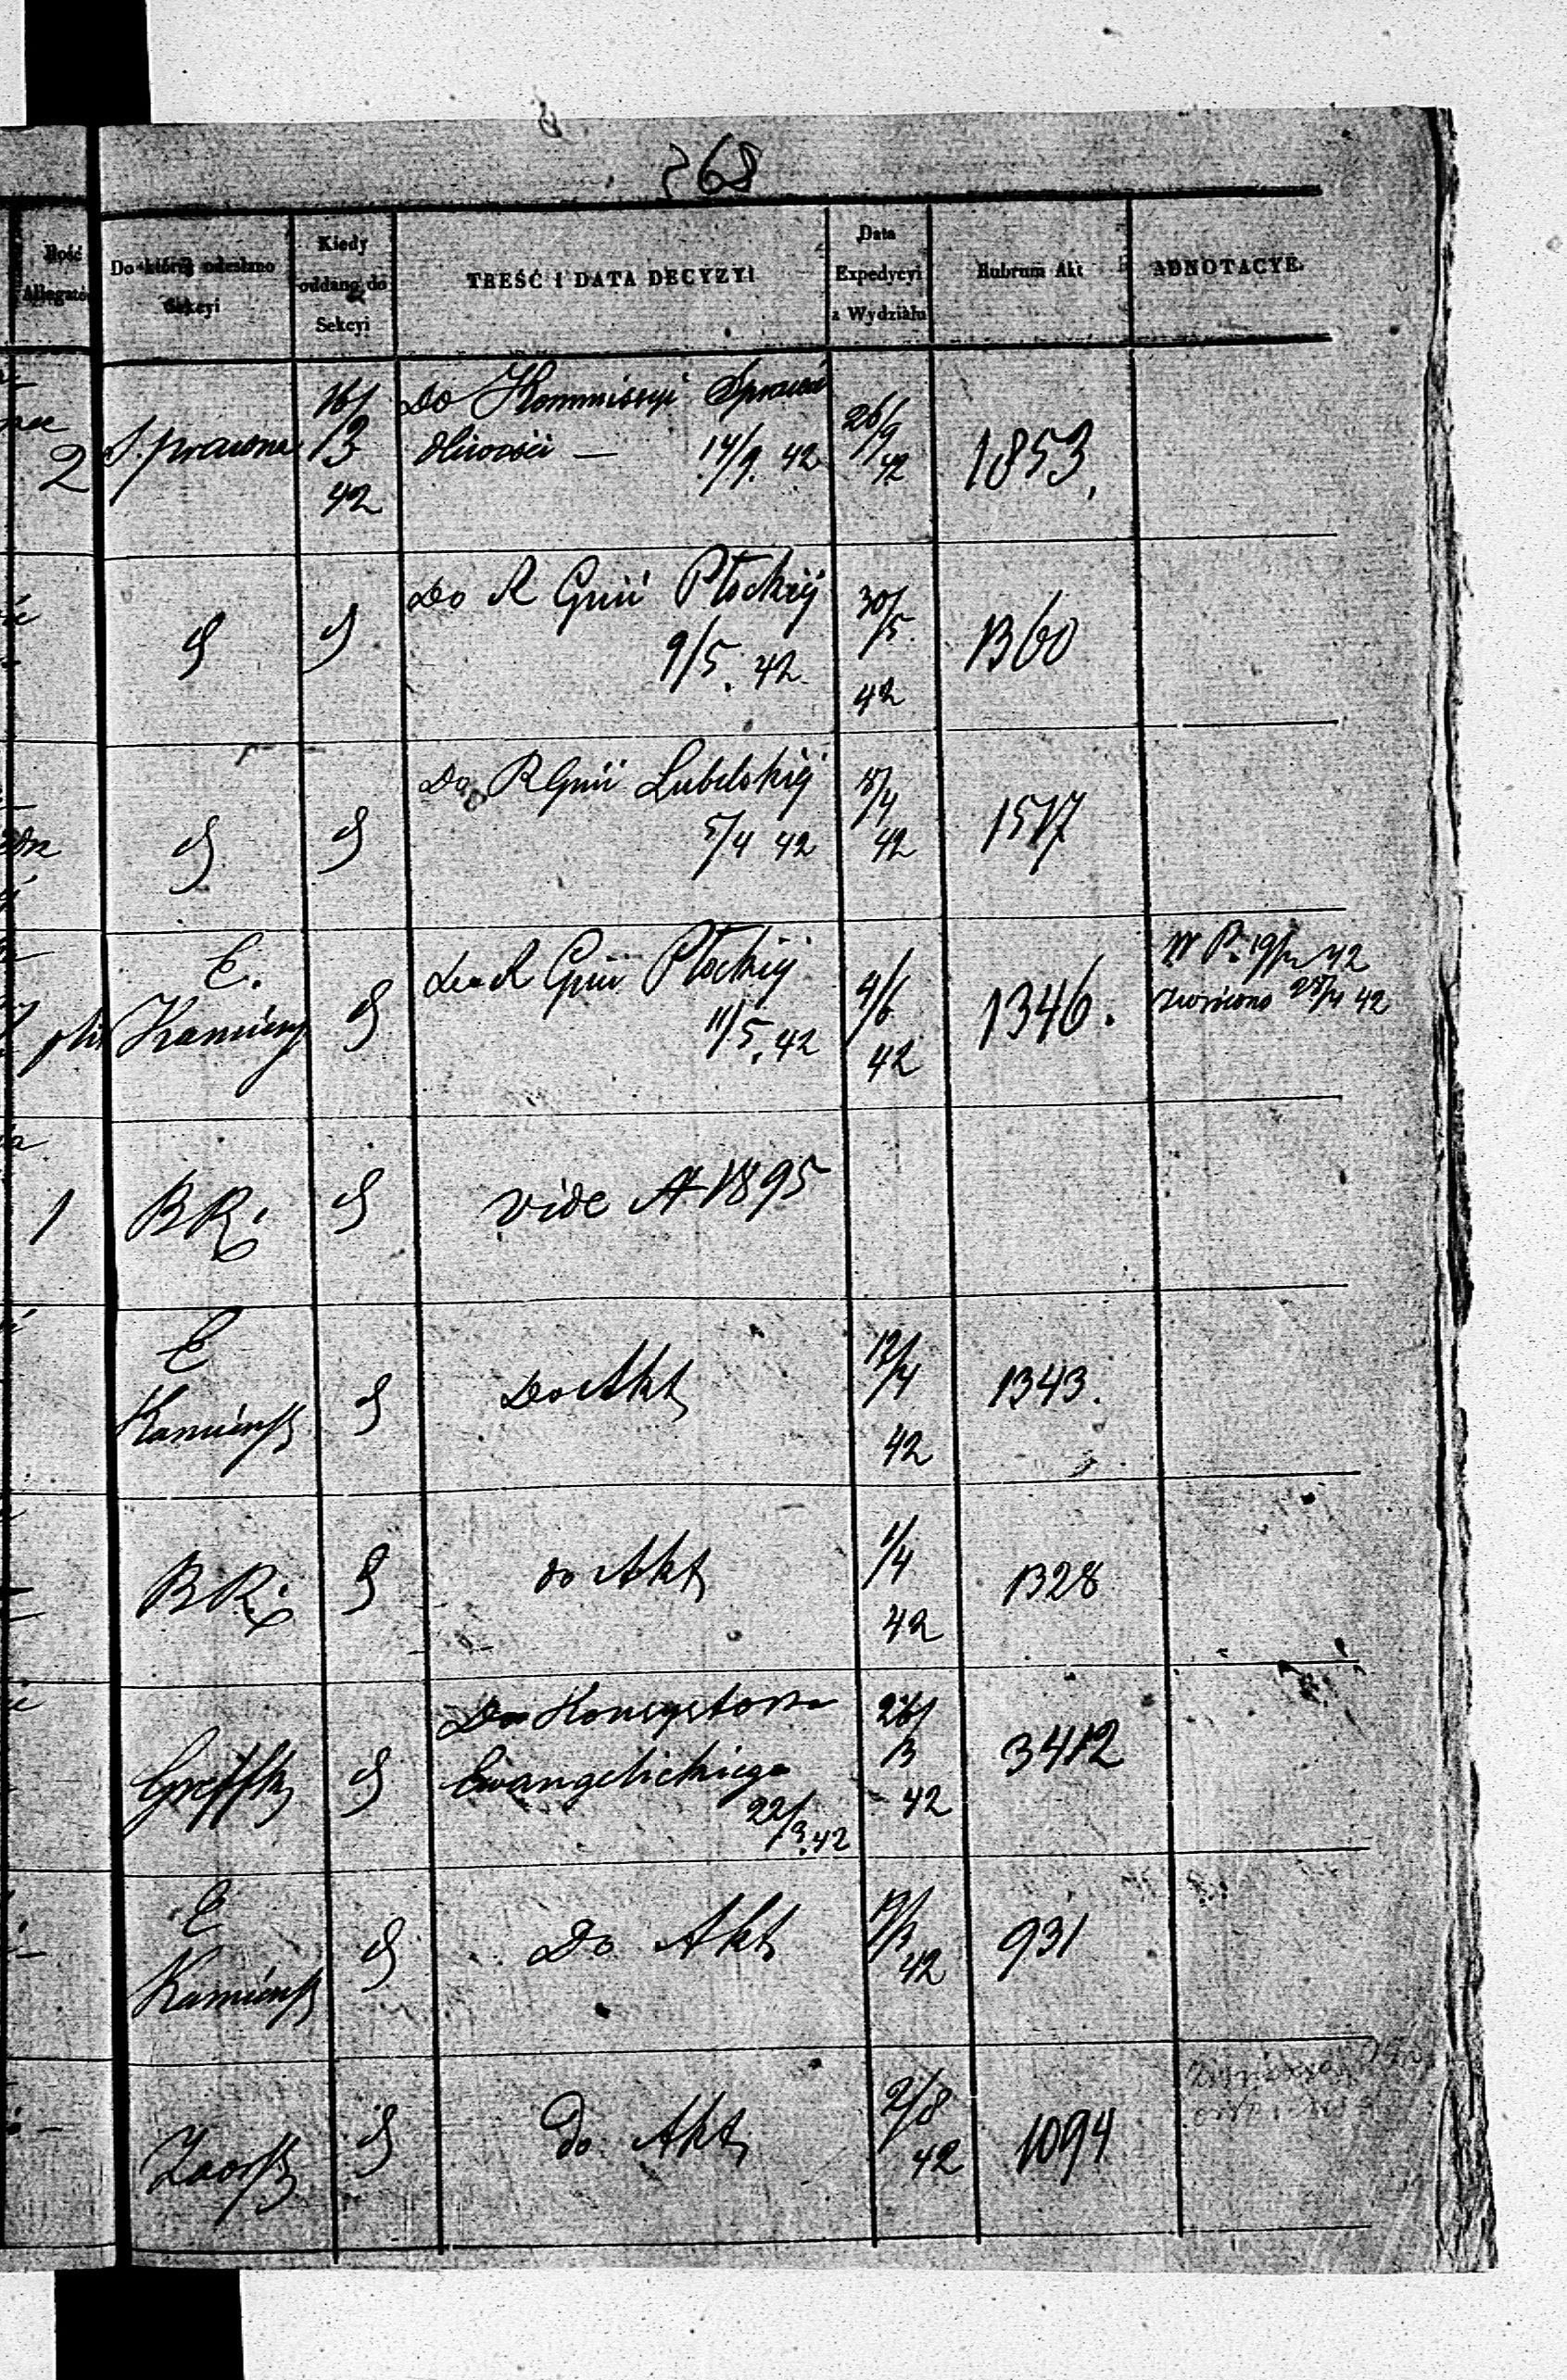 268
Ilość
Allegató
Do której odesłano
Sekcyi
Kiedy
oddano do
Sekcyi
TREŚĆ I DATA DECYZYI
Data
Expedycyi
z Wydziału
Rubrum Akt
ADNOTACYE.
2 S. prawna 16/3 42 Do Kommissyi Sprawie
dliwości — 14/9. 42 26/9 42 1853.
Do R Gnii Płockiéj
9/5. 42 30/5. 42 1360
Do R Gnii Lubelskiéj
5/4 42 15/4 42 1517
E.
Kamieńs Do R Gnii Płockiéj
11/5. 42 4/6 42 1346.
42
Zwrócono 42
1 BR. vide A 1895
E
Kamieńs Do Akt 12/4 42 1343.
BR. do Akt 1/4 42 1328
Do Konsystorza
Ewangelickiego
22/3. 42 26/3 42 3412
E
Kamieńs Do Akt 42 931
do Akt 2/8 42 1094